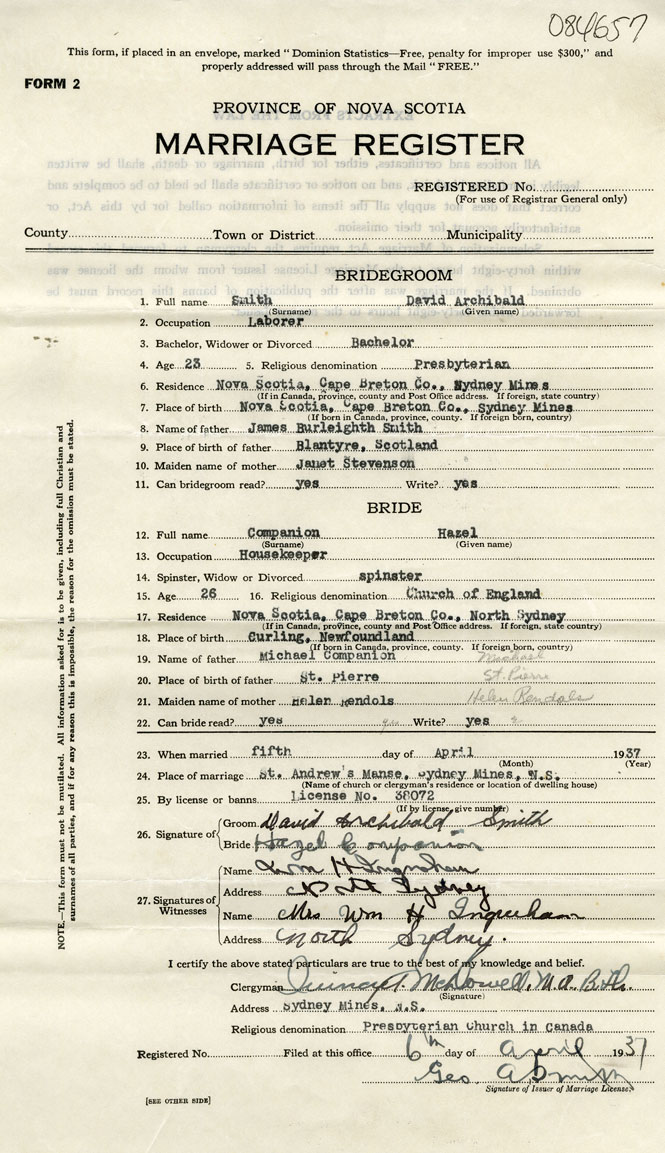 084657
This form, if placed in an envelope, marked "Dominion Statistics—Free, penalty for improper use $300," and
properly addressed will pass through the Mail "FREE."
FORM 2
PROVINCE OF NOVA SCOTIA
MARRIAGE REGISTER
REGISTERED No.
(For use of Registrar General only)
County Town or District Municipality
BRIDEGROOM
1. Full name Smith David Archibald
(Surname) (Given name)
2. Occupation Laborer
3. Bachelor, Widower or Divorced Bachelor
4. Age 23 5. Religious denomination Presbyterian
6. Residence Nova Scotia, Cape Breton Co., Sydney Mines
(If in Canada, province, county and Post Office address. If foreign, state country)
7. Place of birth Nova Scotia, Cape Breton Co., Sydney Mines
(If born in Canada, province, county. If foreign born, country)
8. Name of father James Burleighth Smith
9. Place of birth of father Blantyre, Scotland
10. Maiden name of mother Janet Stevenson
11. Can bridegroom read? yes Write? yes
BRIDE
12. Full name Companion Hazel
(Surname) (Given name)
13. Occupation Housekeeper
14. Spinster, Widow or Divorced spinster
15. Age 26 16. Religious denomination Church of England
17. Residence Nova Scotia, Cape Breton Co., North Sydney
(If in Canada, province, county and Post Office address. If foreign, state country)
18. Place of birth Curling, Newfoundland
(If born in Canada, province, county. If foreign born, country)
19. Name of father Michael Companion Michael
20. Place of birth of father St. Pierre St. Pierre
21. Maiden name of mother Helen Rendols Helen Rendols
22. Can bride read? yes Write? yes
23. When married fifth day of April 1937
(Month) (Year)
24. Place of marriage St. Andrew's Manse, Sydney Mines, N.S.
(Name of church or clergyman's residence or location of dwelling house)
25. By license or banns License No. 38072
(If by license, give number)
26. Signature of
Groom David Archibald Smith
Bride Hazel Companion
27. Signatures of Witnesses
Name Wm H Ingraham
Address North Sydney
Name Mrs Wm H Ingraham
Address North Sydney.
I certify the above stated particulars are true to the best of my knowledge and belief.
Clergyman Quincy A. McDowell, M.A. B.Th.
(Signature)
Address Sydney Mines, N.S.
Religious denomination Presbyterian Church in Canada
Registered No. Filed at this office 6th day of April 1937
Geo A Smith
Signature of Issuer of Marriage License.
[SEE OTHER SIDE]
NOTE.—This form must not be mutilated. All information asked for is to be given, including full Christian and
surnames of all parties, and if for any reason this is impossible, the reason for the omission must be stated.